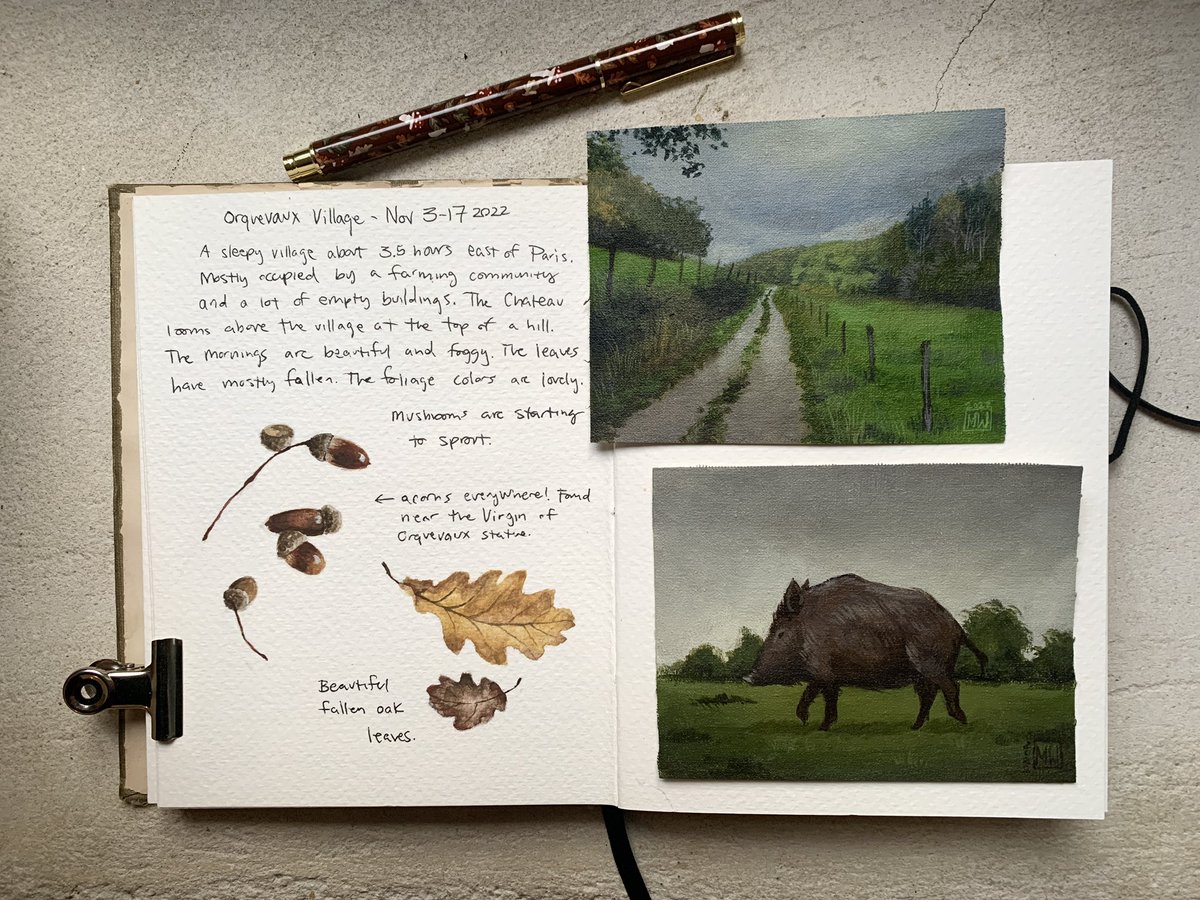 Orquevaux Village - Nov 3-17 2022
A sleepy village about 3.5 hours east of Paris.
Mostly occupied by a farming community
and a lot of empty buildings. The Chateau
looms above the village at the top of a hill.
The mornings are beautiful and foggy. The leaves
have mostly fallen. The foliage colors are lovely.
Mushrooms are starting
to sprout.
← acorns everywhere! Found
near the Virgin of
Orquevaux statue.
Beautiful
fallen oak
leaves.
2022
MW
MW